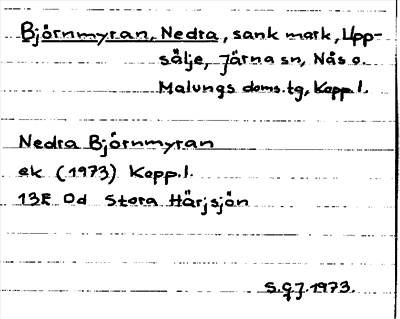 Björnmyran, Nedra, sank mark, Upp-
sälje, Järna sn, Nås o.
Malungs doms.tg, Kopp.l.
Nedra Björnmyran
ek (1973) Kopp.l.
13E 0d Stora Härjsjön
S.G.J. 1973.